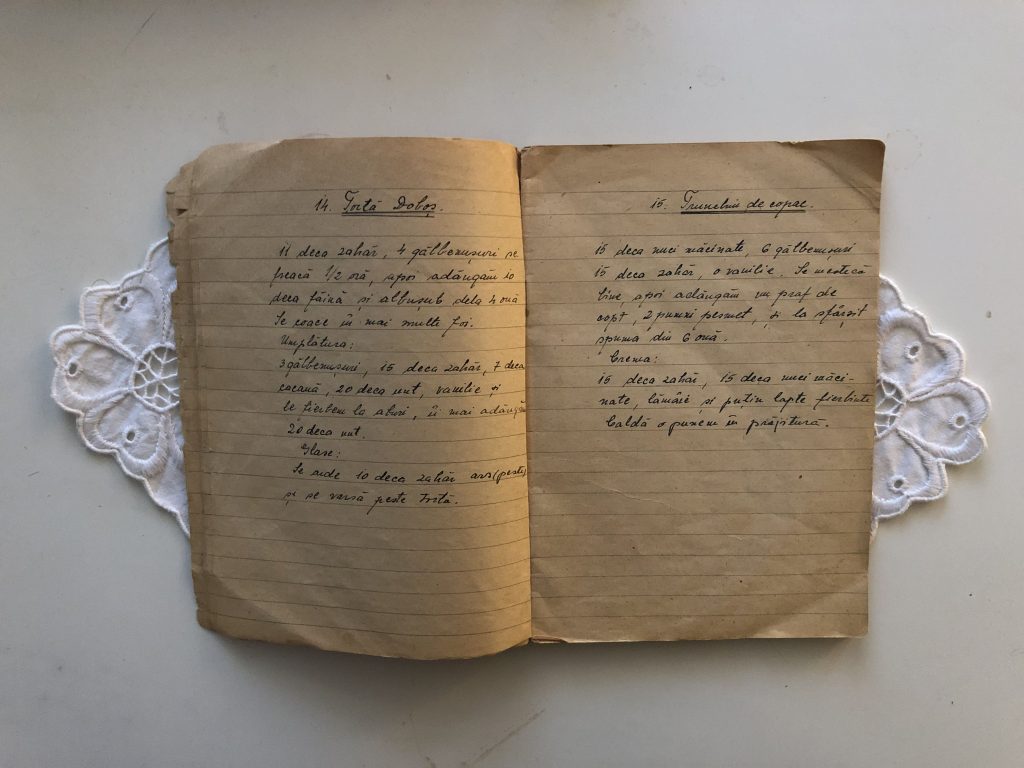 14. Tortă Doboș.
11 deca zahăr, 4 gălbenușuri se
freacă 1/2 oră, apoi adăugăm 10
deca făină și albușub dela 4 ouă
Se coace în mai multe foi.
Umplătura:
3 gălbenușuri, 15 deca zahăr, 7 deca
cacauă, 20 deca unt, vanilie și
le fierbem la aburi, îi mai adăugăm
20 deca unt.
Glase:
Se arde 10 deca zahăr ars (peste)
și se varsă peste tortă.
15. Trunchiu de copac.
15 deca nuci măcinate, 6 gălbenușuri
15 deca zahăr, o vanilie, Se mestecă
bine, apoi adăugăm un praf de
copt, 2 pumni pesmet, și la sfârșit
spuma din 6 ouă.
Crema:
15 deca zahăr, 15 deca nuci măci-
nate, lămâie și puțin lapte fierbinte
Caldă o punem în prăjitură.